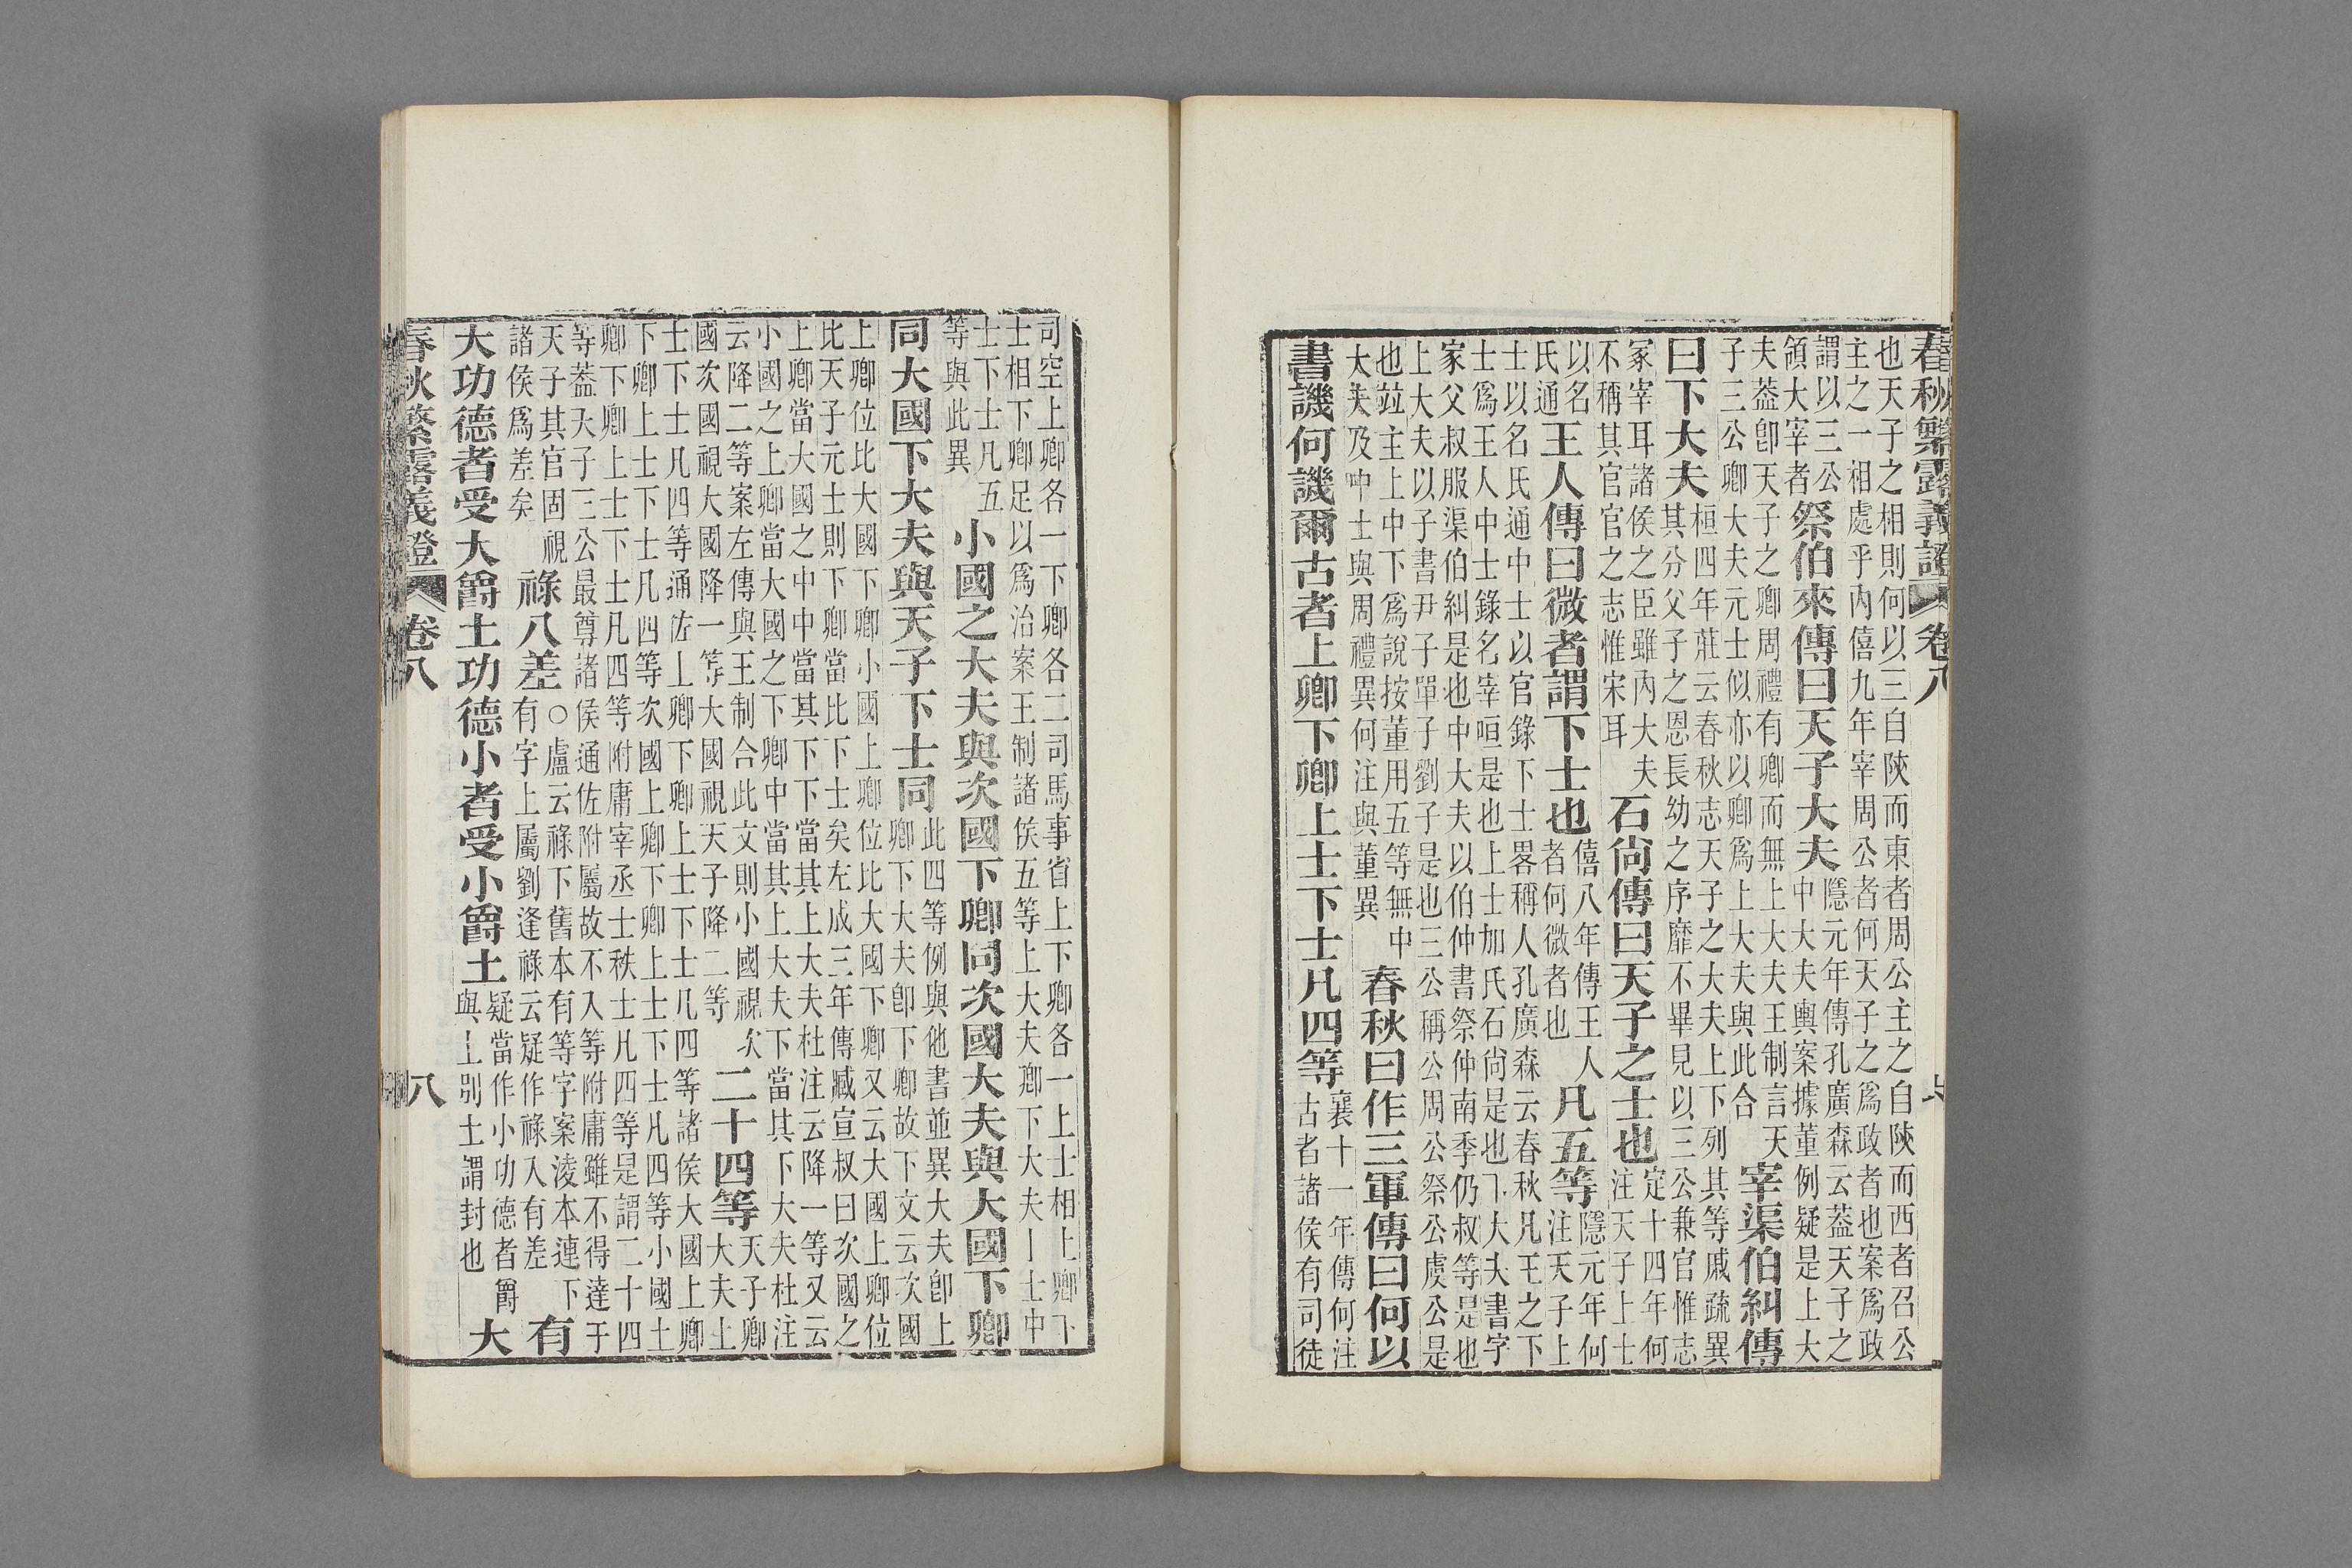 春秋繁露義證 卷八
也天子之相則何以三自陝而東者周公主之自陝而西者召公
主之一相處乎內僖九年宰周公者何天子之爲政者也案爲政
謂以三公
領大宰者
祭伯來傳曰天子大夫
隱元年傳孔廣森云葢天子之
中大夫輿案據董例疑是上大
夫葢卽天子之卿周禮有卿而無上大夫王制言天
子三公卿大夫元士似亦以卿爲上大夫與此合
宰渠伯糾傳
曰下大夫
桓四年莊云春秋志天子之大夫上下列其等戚疏異
其分父子之恩長幼之序靡不畢見以三公兼官惟志
冢宰耳諸侯之臣雖內大夫
不稱其官官之志惟宋耳
石尙傳曰天子之士也
定十四年何
注天子上士
以名
氏通
王人傳曰微者謂下士也
僖八年傳王人
者何微者也
凡五等
隱元年何
注天子上
士以名氏通中士以官錄下士畧稱人孔廣森云春秋凡王之下
士爲王人中士錄名宰咺是也上士加氏石尙是也下大夫書字
家父叔服渠伯糾是也中大夫以伯仲書祭仲南季仍叔等是也
上大夫以子書尹子單子劉子是也三公稱公周公祭公虞公是
也竝主上中下爲說按董用五等無中
大夫及中士與周禮異何注與董異
春秋曰作三軍傳曰何以
書譏何譏爾古者上卿下卿上士下士凡四等
襄十一年傳何注
古者諸侯有司徒
司空上卿各一下卿各二司馬事省上下卿各一上士相上卿下
士相下卿足以爲治案王制諸侯五等上大夫卿下大夫上士中
士下士凡五
等與此異
小國之大夫與次國下卿同次國大夫與大國下卿
同大國下大夫與天子下士同
此四等例與他書並異大夫卽上
卿下大夫卽下卿故下文云次國
上卿位比大國下卿小國上卿位比大國下卿又云大國上卿位
比天子元士則下卿當比下士矣左成三年傳臧宣叔曰次國之
上卿當大國之中中當其下下當其上大夫杜注云降一等又云
小國之上卿當大國之下卿中當其上大夫下當其下大夫杜注
云降二等案左傳與王制合此文則小國視次
國次國視大國降一等大國視天子降二等
二十四等
天子卿
大夫上
士下士凡四等通佐上卿下卿上士下士凡四等諸侯大國上卿
下卿上士下士凡四等次國上卿下卿上士下士凡四等小國上
卿下卿上士下士凡四等附庸宰丞士秩士凡四等是謂二十四
等葢天子三公最尊諸侯通佐附屬故不入等附庸雖不得達于
天子其官固視
諸侯爲差矣
祿八差
○盧云祿下舊本有等字案淩本連下
有字上屬劉逢祿云疑作祿入有差
有
大功德者受大爵土功德小者受小爵土
疑當作小功德者爵
與上別土謂封也
大
春秋繁露義證 卷八 八